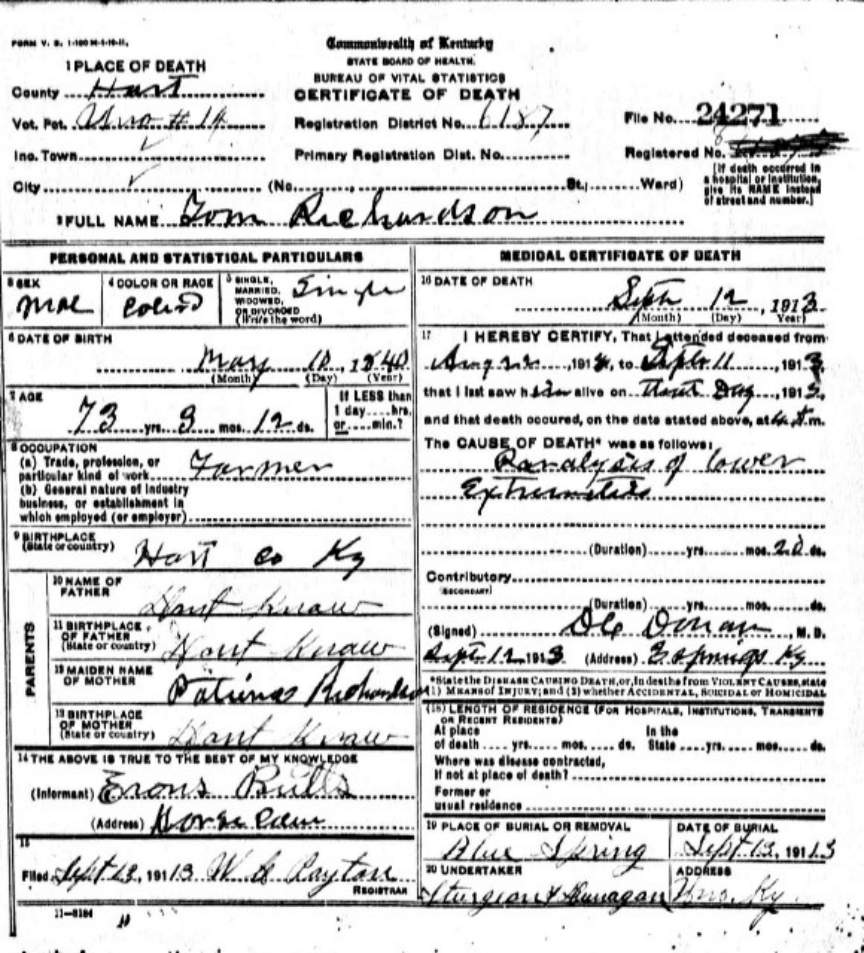 FORM V. S. 1-100 M-1-10-11.
Commonwealth of Kentucky
STATE BOARD OF HEALTH.
BUREAU OF VITAL STATISTICS
CERTIFICATE OF DEATH
1 PLACE OF DEATH
County Hart
Vot. Pct. Uno # 14
Registration District No. 6187
File No. 24271
Inc. Town
Primary Registration Dist. No.
Registered No.
City (No. St.; Ward)
[If death occurred in a hospital or institution, give its NAME instead of street and number.]
2 FULL NAME Tom Richardson
PERSONAL AND STATISTICAL PARTICULARS
3 SEX
Mal
4 COLOR OR RACE
Colerd
5 SINGLE, MARRIED, WIDOWED, OR DIVORCED (Write the word)
Single
6 DATE OF BIRTH
May 10, 1840
(Month) (Day) (Year)
7 AGE
73 yrs. 3 mos. 12 ds.
If LESS than 1 day....hrs. or....min.?
8 OCCUPATION
(a) Trade, profession, or particular kind of work Farmer
(b) General nature of industry business, or establishment in which employed (or employer)
9 BIRTHPLACE (State or country)
Hart co Ky
PARENTS
10 NAME OF FATHER
Dant Knaw
11 BIRTHPLACE OF FATHER (State or country)
Dant Knaw
12 MAIDEN NAME OF MOTHER
Richardson
13 BIRTHPLACE OF MOTHER (State or country)
Dant Knaw
14 THE ABOVE IS TRUE TO THE BEST OF MY KNOWLEDGE
(Informant)
(Address) Horse Cave
15
Filed Sept 13, 1913 W C Payton
REGISTRAR
11—3184
MEDICAL CERTIFICATE OF DEATH
16 DATE OF DEATH
Sept 12, 1913
(Month) (Day) (Year)
17 I HEREBY CERTIFY, That I attended deceased from
Aug 22, 191, to Sept 11, 1913,
that I last saw him alive on that Day, 1913,
and that death occured, on the date stated above, at m.
The CAUSE OF DEATH* was as follows:
Paralysis of lower
Extremeties
(Duration) yrs. mos. 20 ds.
Contributory
(SECONDARY)
(Duration) yrs. mos. ds.
(Signed) Donan, M. D.
Sept 12 1913 (Address) Ky
*State the DISEASE CAUSING DEATH, or, in deaths from VIOLENT CAUSES, state
(1) MEANS OF INJURY; and (2) whether ACCIDENTAL, SUICIDAL or HOMICIDAL
(18) LENGTH OF RESIDENCE (FOR HOSPITALS, INSTITUTIONS, TRANSIENTS OR RECENT RESIDENTS)
At place of death .... yrs. .... mos. .... ds. In the State .... yrs. .... mos. .... ds.
Where was disease contracted,
If not at place of death?
Former or
usual residence
19 PLACE OF BURIAL OR REMOVAL
Blue Spring
DATE OF BURIAL
Sept 13, 1913
20 UNDERTAKER
Sturgeon &
ADDRESS
Uno, Ky